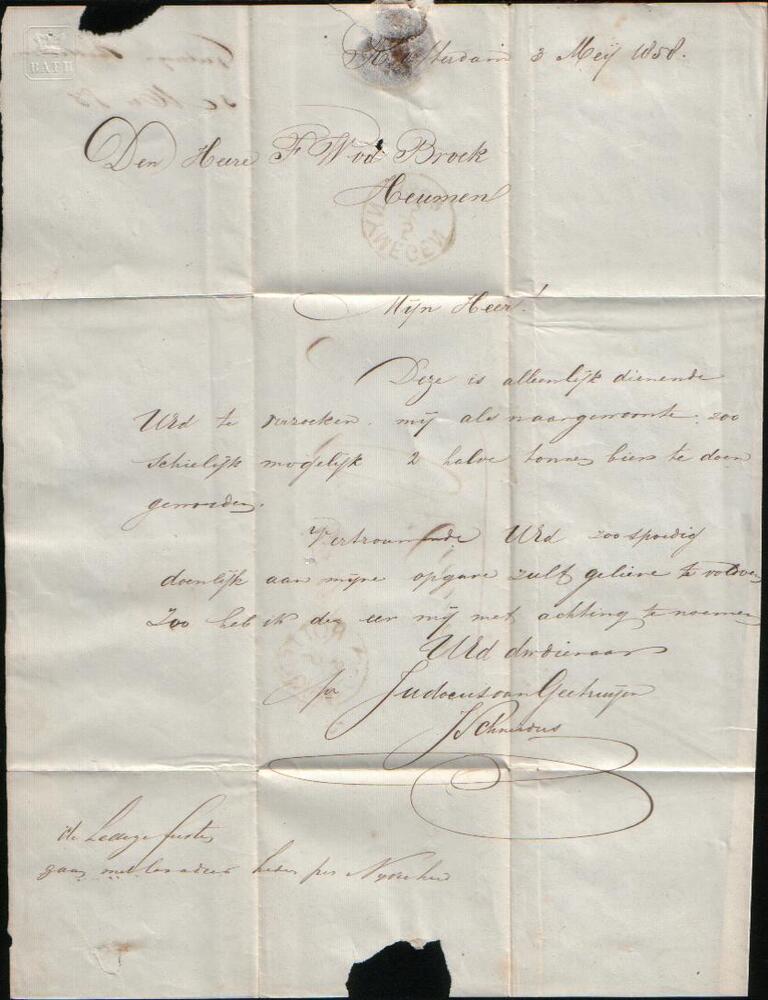 BATH
Amsterdam 3 Meij 1858.
Den Heere F W vd Broek
Heumen
NYMEGEN
Mijn Heer!
Deze is alleenlijk dienende
UEd te verzoeken mij als naar gewoonte zoo
schielijk mogelijk 2 halve tonnen bier te doen
geworden.
Vertrouwende UEd zoo spoedig
doenlijk aan mijne opgave zult gelieve te voldoen
Zoo heb ik de eer mij met achting te noemen
UEd dw dienaar
per Judocus van
JSchneiders
de Ledige fusten
gaan met heden per